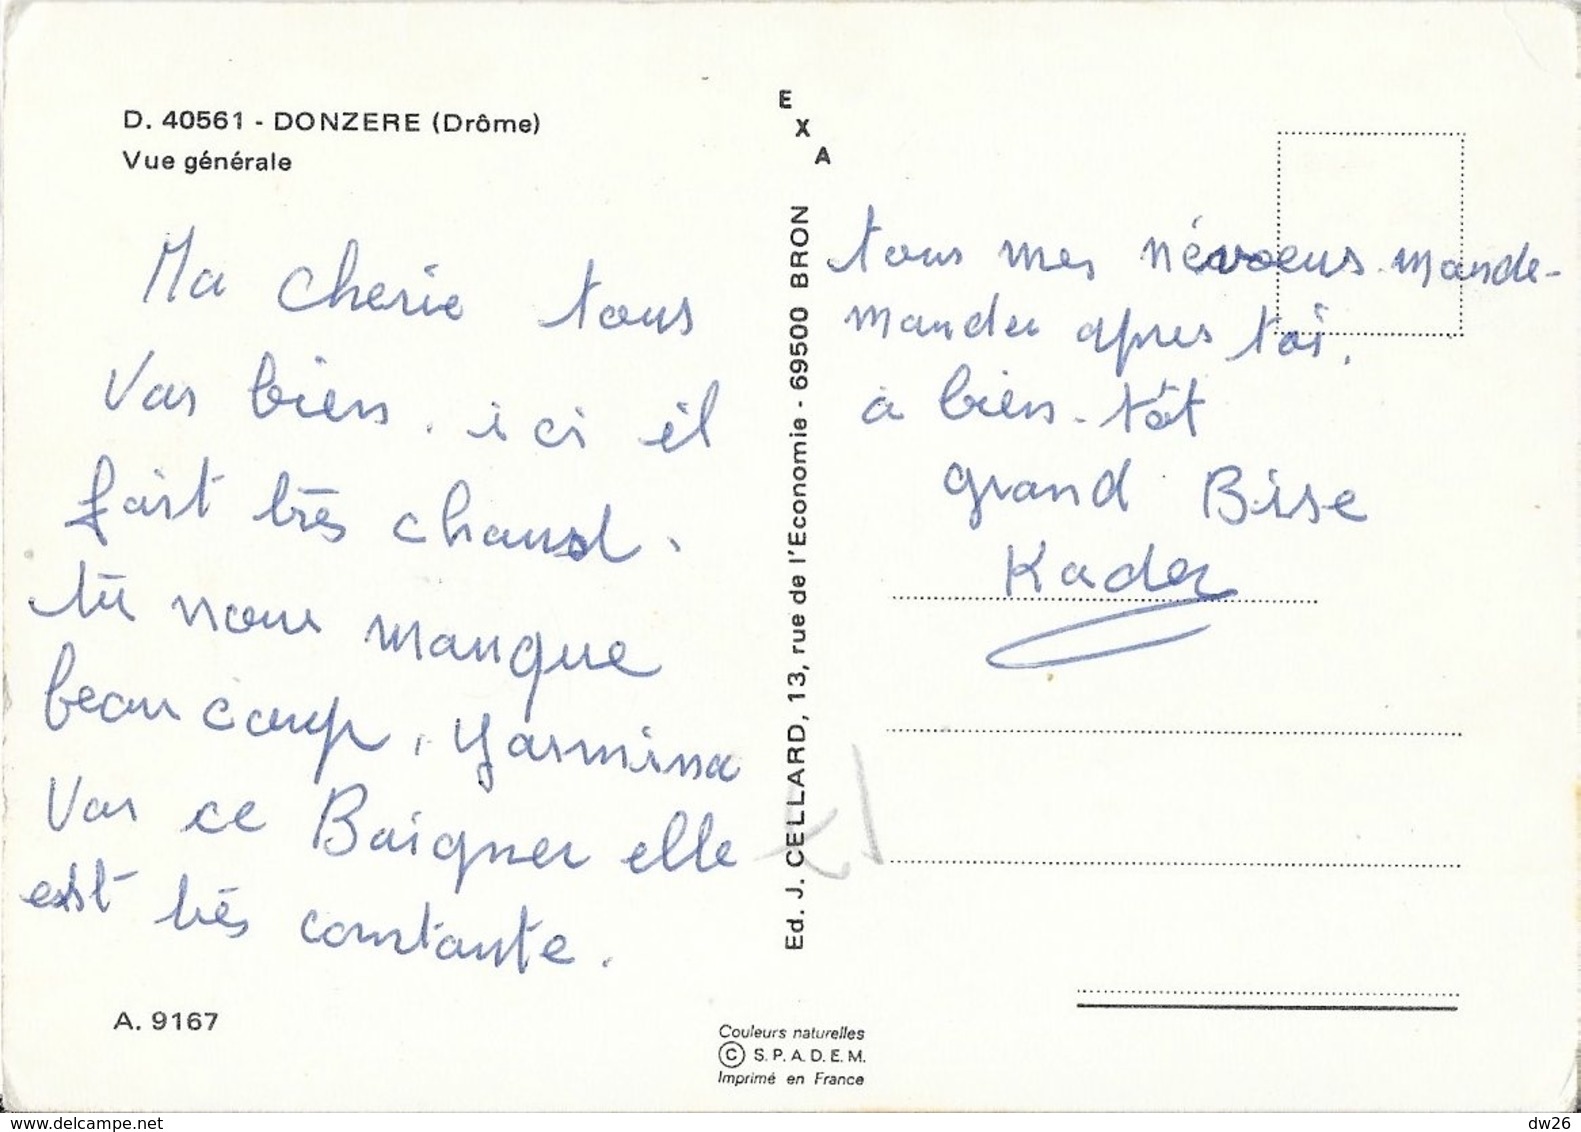 D. 40561 - DONZERE (Drôme)
Vue générale
Ma cherie tous
Vas bien. ici il
fait très chaud.
tu nous manque
beaucoup, Yasmina
Vas ce Baigner elle
est très constante.
A. 9167
E
X
A
Ed. J. CELLARD, 13, rue de l'Economie - 69500 BRON
Couleurs naturelles
© S.P.A.D.E.M.
Imprimé en France
tous mes névoeus mande-
mander apres toi.
à bien-tôt
grand Bise
Kader
https://www.delcampe.net
dw26